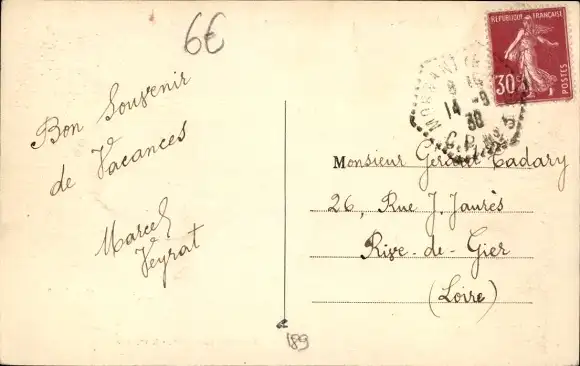 6€
RÉPUBLIQUE FRANÇAISE
30
POSTES
14 -9
38
Bon Souvenir
de Vacances
Marcel
Veyrat
Monsieur Cadary
26, Rue J. Jaurès
Rive-de-Gier
(Loire)
189